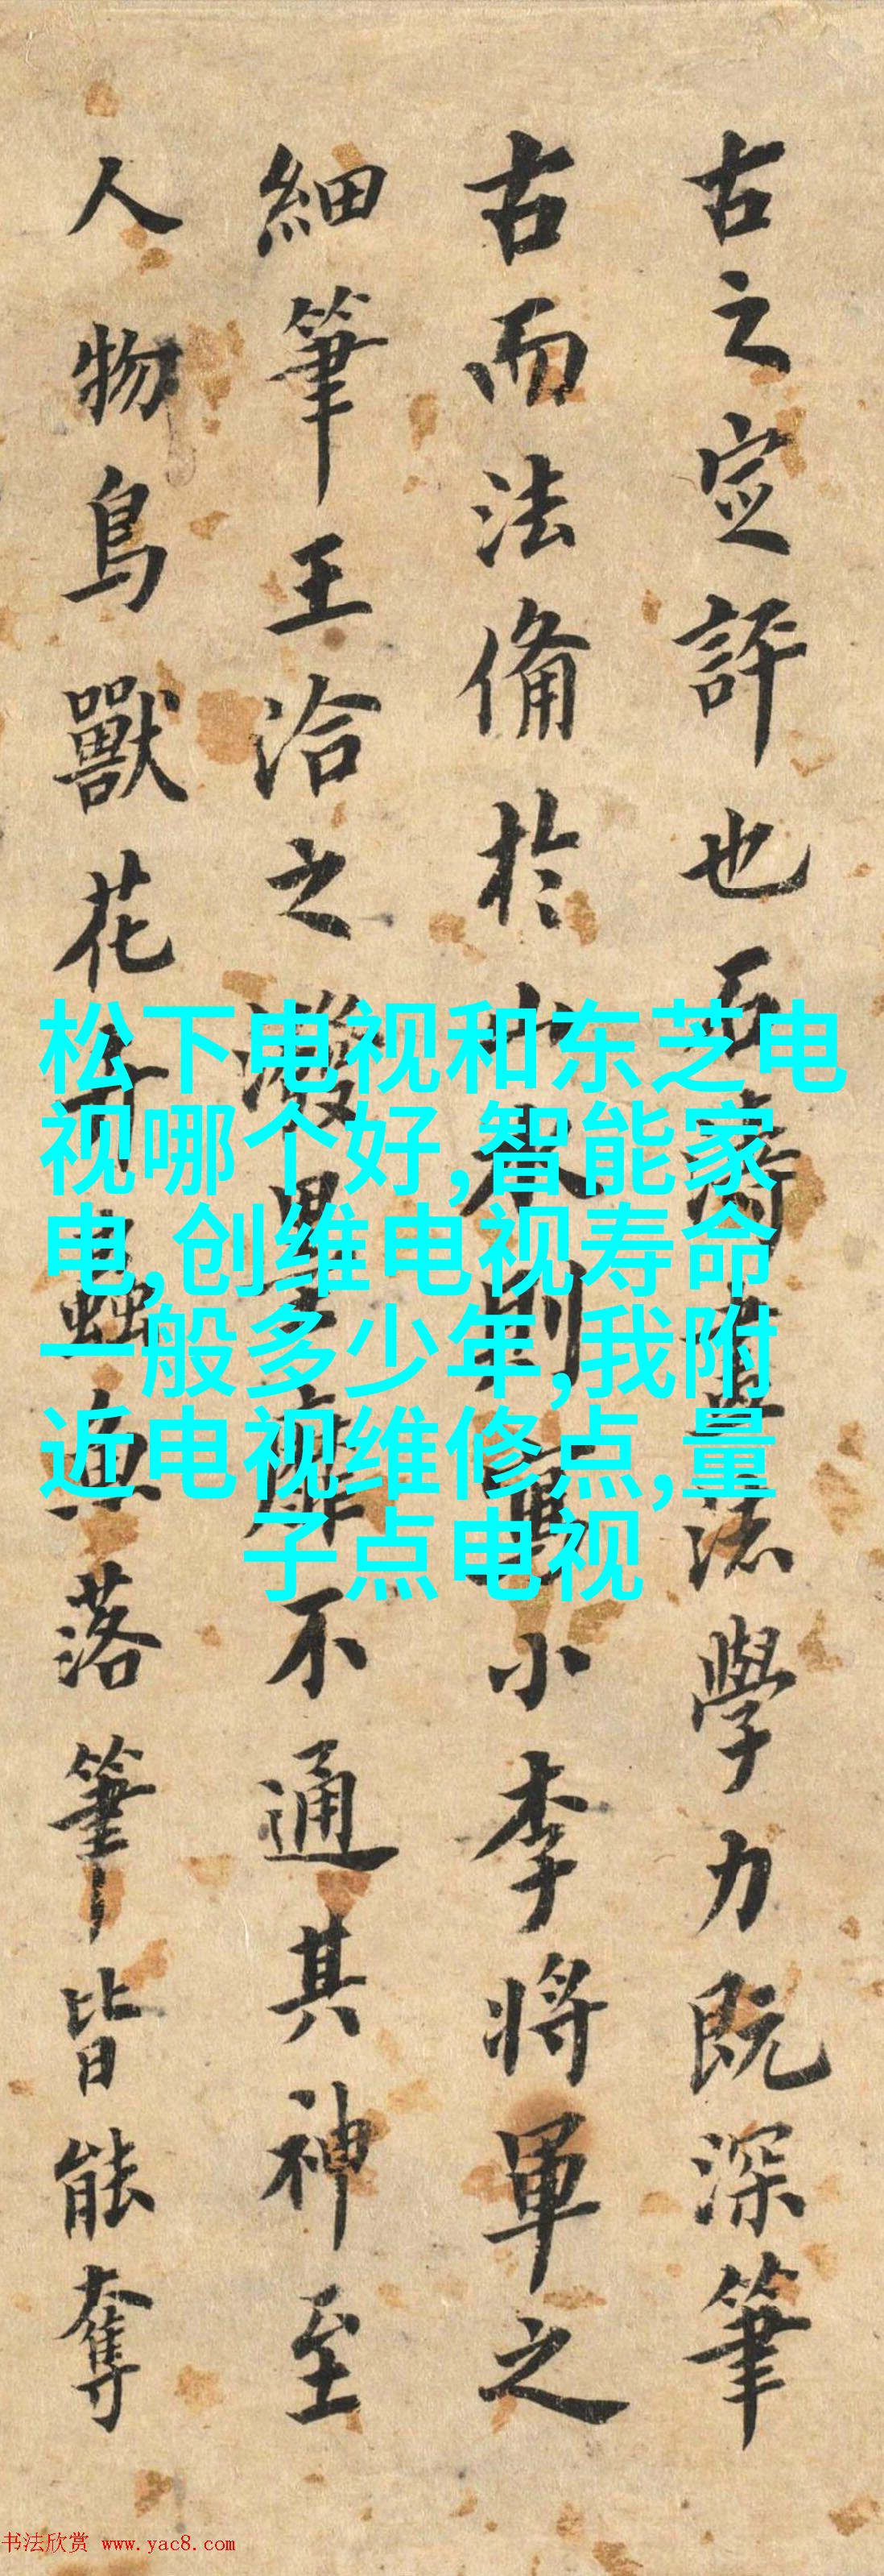 古之定評也石濤書法學力既深筆
古而法備於山水則寓小李將軍之
細筆王洽之潑墨靡不通其神至
人物鳥獸花卉蟲魚落筆皆能奪
松下电视和东芝电
视哪个好,智能家
电,创维电视寿命
一般多少年,我附
近电视维修点,量
子点电视
书法欣赏 www.yac8.com